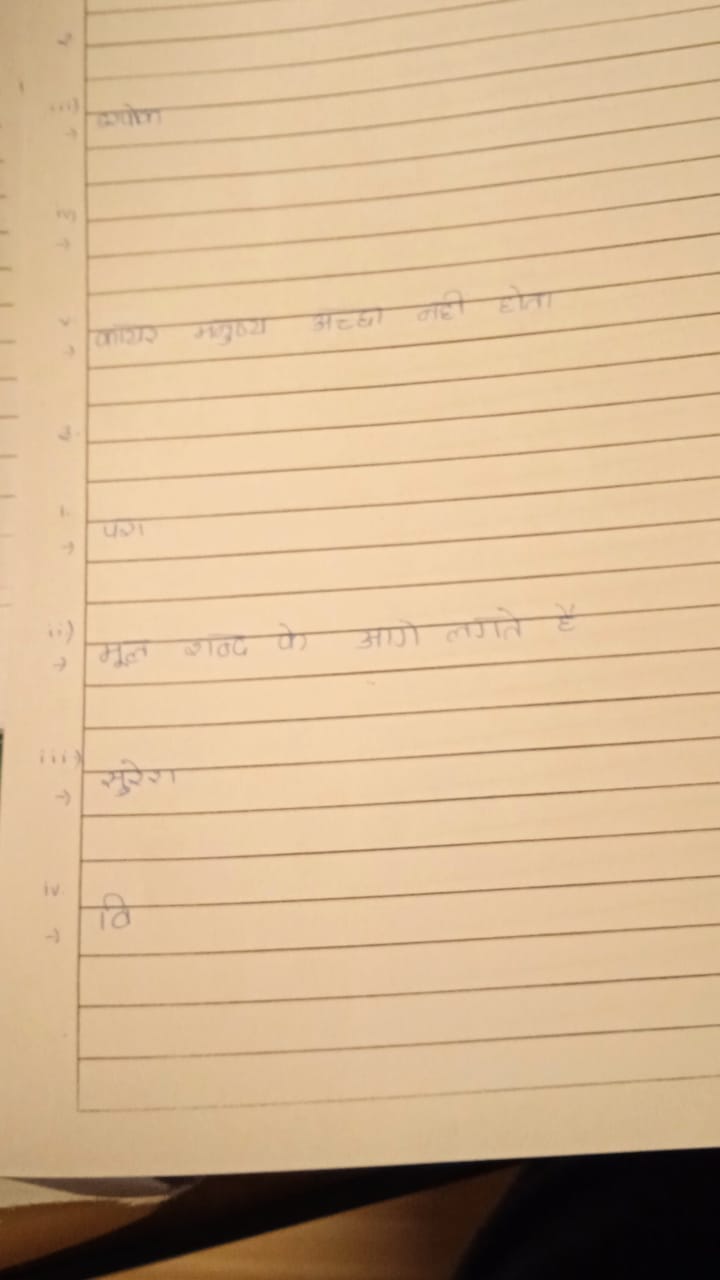 iii)
→
iv)
→
v
→ कायर मनुष्य अच्छा नही होता
i.
→
ii)
→ मूल शब्द के आगे लगते है
iii)
→ सुरेश
iv.
→ वि